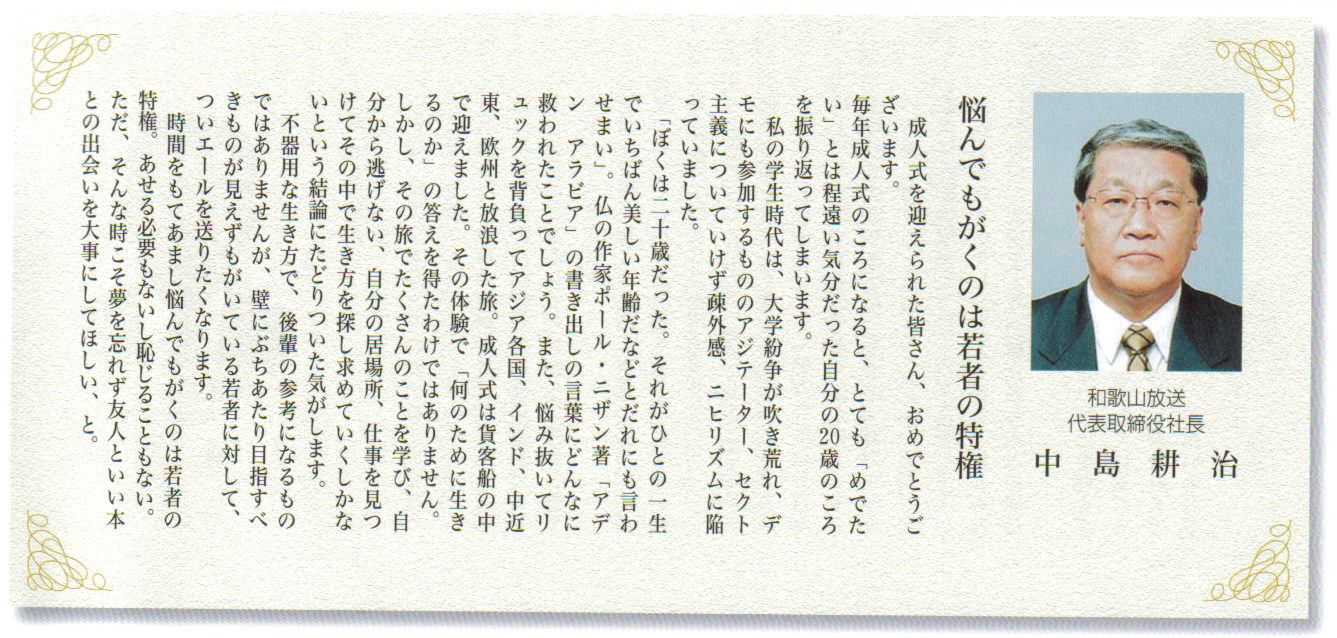 和歌山放送
代表取締役社長
中島耕治
悩んでもがくのは若者の特権
成人式を迎えられた皆さん、おめでとうご
ざいます。
毎年成人式のころになると、とても「めでた
い」とは程遠い気分だった自分の20歳のころ
を振り返ってしまいます。
私の学生時代は、大学紛争が吹き荒れ、デ
モにも参加するもののアジテーター、セクト
主義についていけず疎外感、ニヒリズムに陥
っていました。
「ぼくは二十歳だった。それがひとの一生
でいちばん美しい年齢だなどとだれにも言わ
せまい」。仏の作家ポール・ニザン著「アデ
ン アラビア」の書き出しの言葉にどんなに
救われたことでしょう。また、悩み抜いてリ
ュックを背負ってアジア各国、インド、中近
東、欧州と放浪した旅。成人式は貨客船の中
で迎えました。その体験で「何のために生き
るのか」の答えを得たわけではありません。
しかし、その旅でたくさんのことを学び、自
分から逃げない、自分の居場所、仕事を見つ
けてその中で生き方を探し求めていくしかな
いという結論にたどりついた気がします。
不器用な生き方で、後輩の参考になるもの
ではありませんが、壁にぶちあたり目指すべ
きものが見えずもがいている若者に対して、
ついエールを送りたくなります。
時間をもてあまし悩んでもがくのは若者の
特権。あせる必要もないし恥じることもない。
ただ、そんな時こそ夢を忘れず友人といい本
との出会いを大事にしてほしい、と。